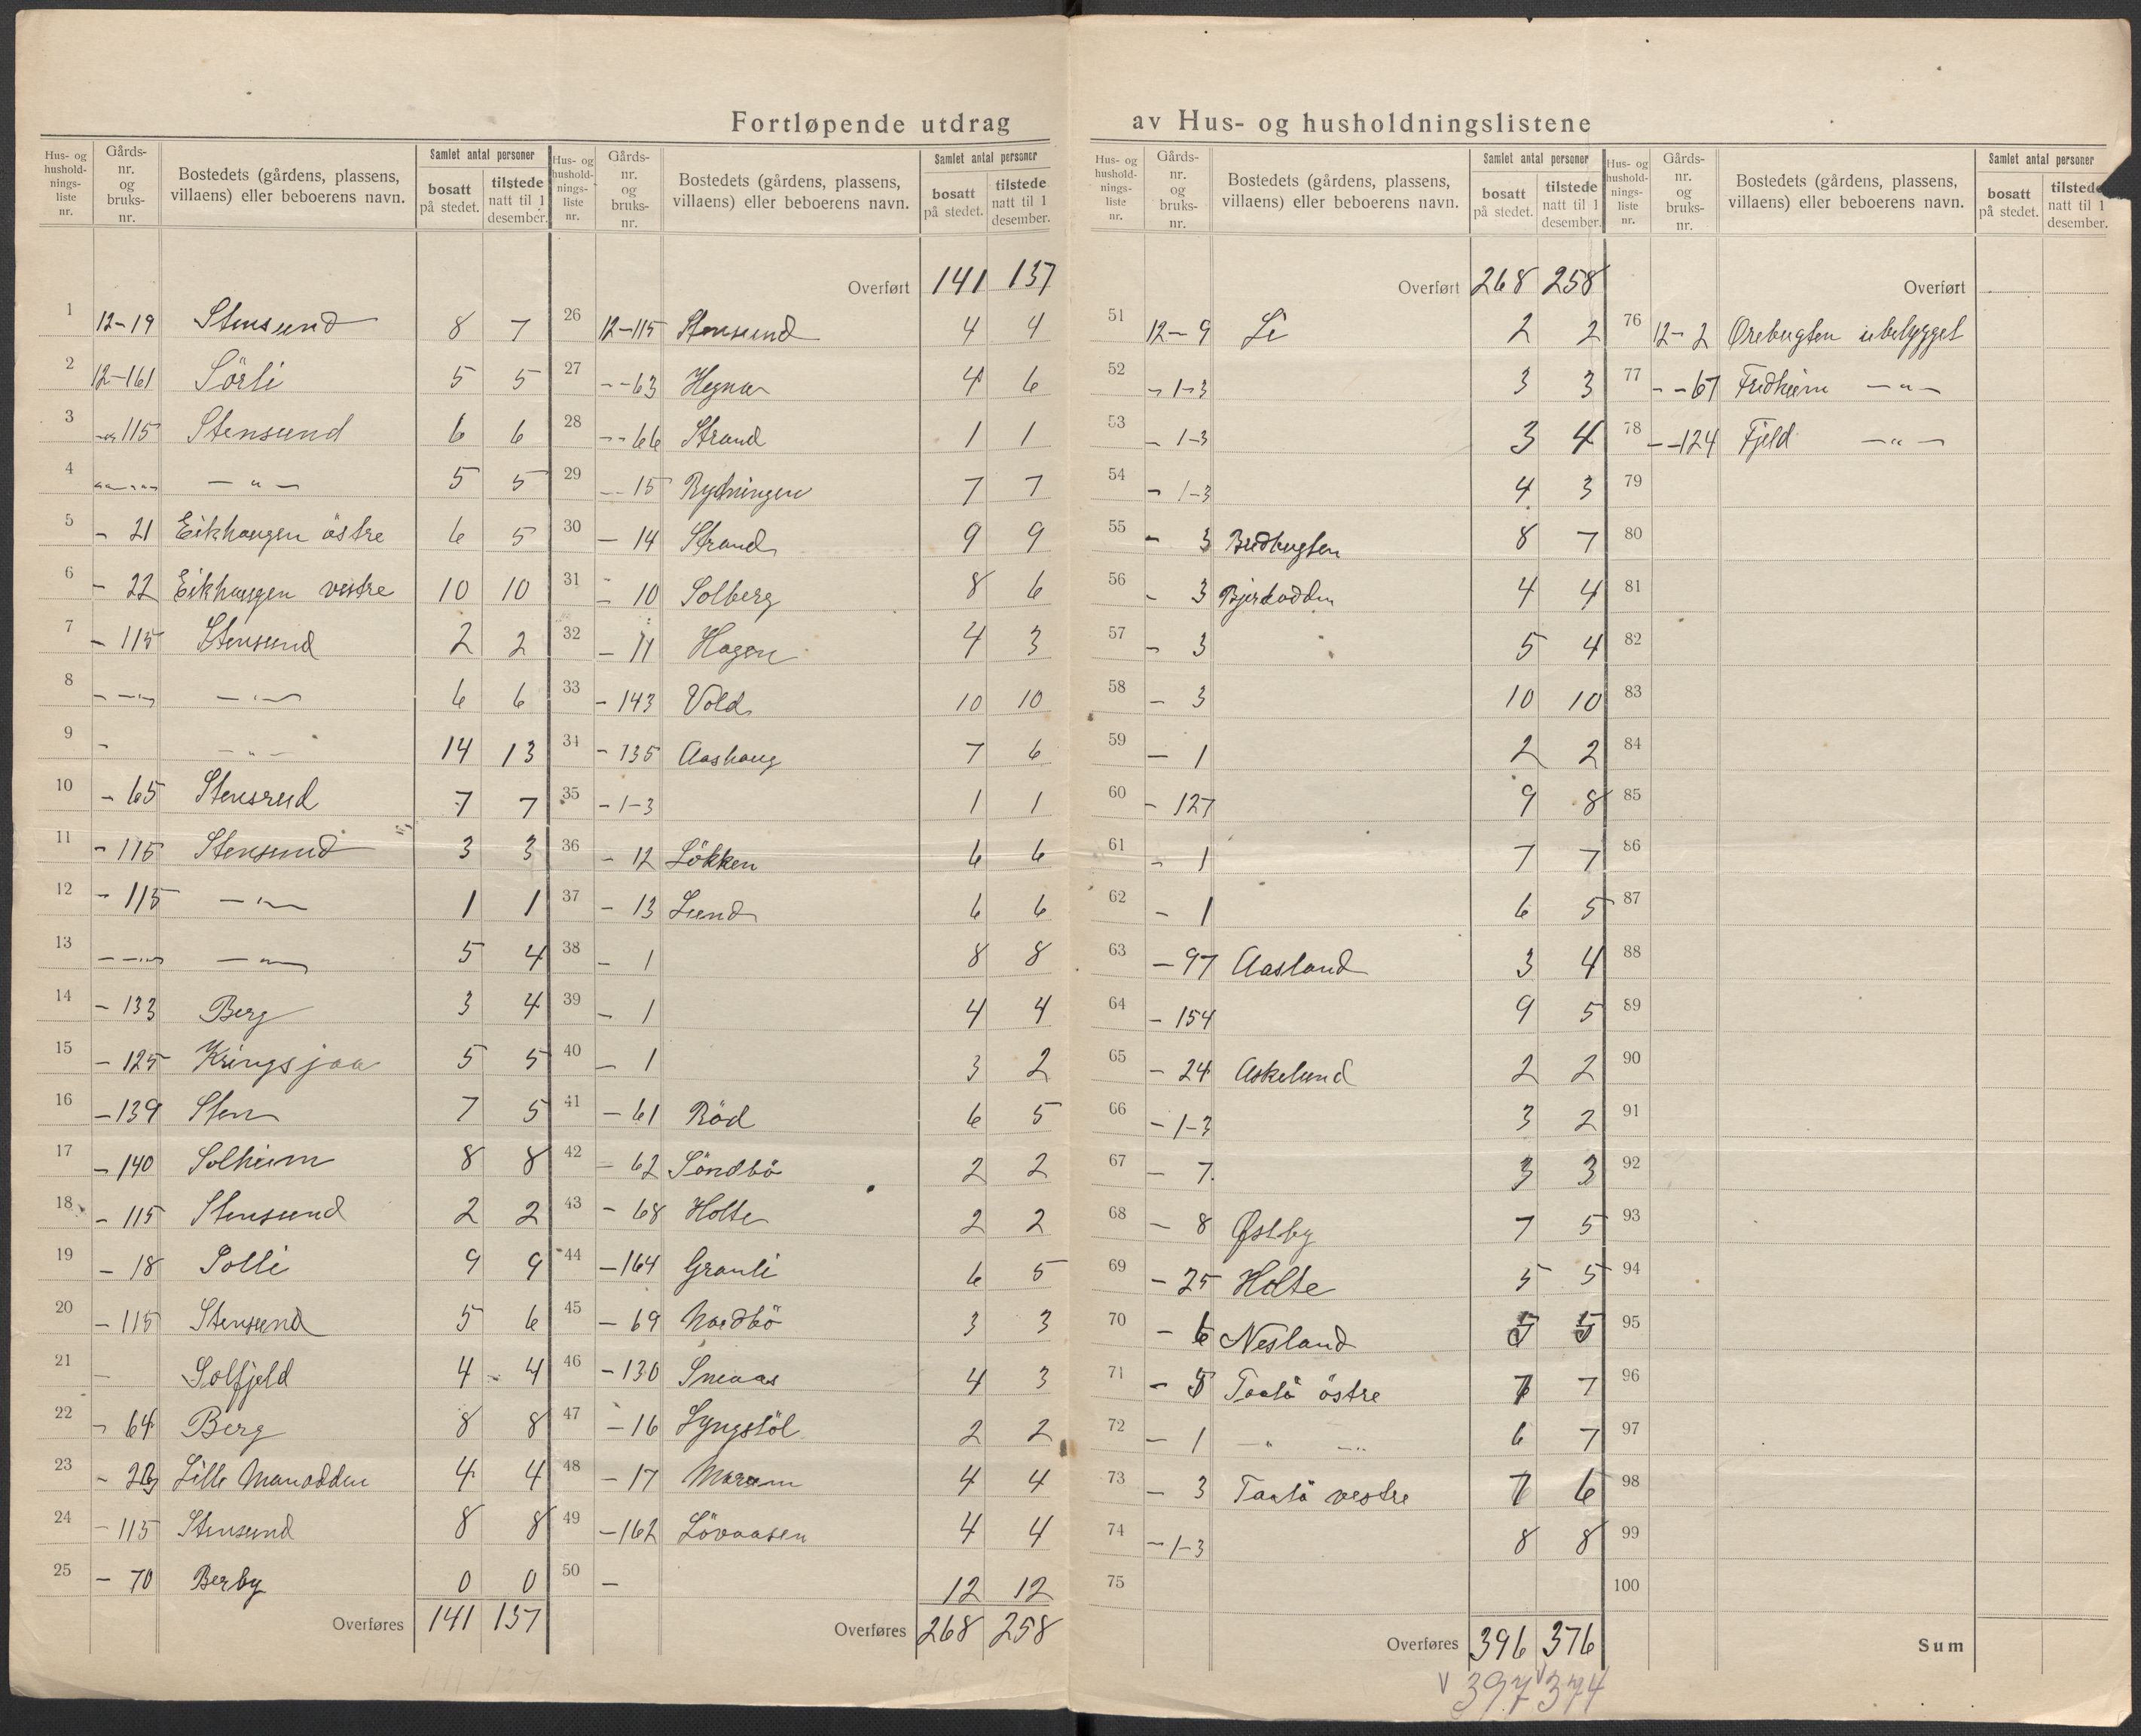 Fortløpende utdrag av Hus- og husholdningslistene
Hus- og hushold- nings- liste nr. | Gårds- nr. og bruks- nr. | Bostedets (gårdens, plassens, villaens) eller beboerens navn. | Samlet antal personer | bosatt på stedet. | tilstede natt til 1 desember.
1 12-19 Stensund 8 7
2 12-161 Sörli 5 5
3 -"-115 Stensund 6 6
4 -"- -"- 5 5
5 - 21 Eikhaugen östre 6 5
6 - 22 Eikhaugen vestre 10 10
7 - 115 Stensund 2 2
8 - -"- -"- 6 6
9 - -"- 14 13
10 - 65 Stensrud 7 7
11 - 115 Stensund 3 3
12 - 115 -"- 1 1
13 - -"- -"- 5 4
14 - 133 Berg 3 4
15 - 125 Kringsjaa 5 5
16 - 139 Sten 7 5
17 - 140 Solheim 8 8
18 - 115 Stensund 2 2
19 - 18 Solli 9 9
20 - 115 Stensund 5 6
21 - Solfjeld 4 4
22 - 64 Berg 8 8
23 - Lille Manodden 4 4
24 - 115 Stensund 8 8
25 - 70 Berby 0 0
Overføres 141 137
Hus- og hushold- nings- liste nr. | Gårds- nr. og bruks- nr. | Bostedets (gårdens, plassens, villaens) eller beboerens navn. | Samlet antal personer | bosatt på stedet. | tilstede natt til 1 desember.
Overført 141 137
26 12-115 Stensund 4 4
27 - -63 Hegna 4 6
28 - -66 Strand 1 1
29 - -15 Rydningen 7 7
30 - 14 Strand 9 9
31 - 10 Solberg 8 6
32 - 11 Hagen 4 3
33 - 143 Vold 10 10
34 - 135 Aashaug 7 6
35 - 1-3 1 1
36 - 12 Lökken 6 6
37 - 13 Lund 6 6
38 - 1 8 8
39 - 1 4 4
40 - 1 3 2
41 - 61 Röd 6 5
42 - 62 Söndbö 2 2
43 - 68 Holte 2 2
44 - 164 Granli 6 5
45 - 69 Nordbö 3 3
46 - 130 Sneaas 4 3
47 - 16 Lyngstöl 2 2
48 - 17 4 4
49 - 162 Lövaasen 4 4
50 - 12 12
Overføres 268 258
Hus- og hushold- nings- liste nr. | Gårds- nr. og bruks- nr. | Bostedets (gårdens, plassens, villaens) eller beboerens navn. | Samlet antal personer | bosatt på stedet. | tilstede natt til 1 desember.
Overført 268 258
51 12-9 Li 2 2
52 - 1-3 3 3
53 - 1-3 3 4
54 - 1-3 4 3
55 - 3 Budbugten 8 7
56 - 3 Bjerkodden 4 4
57 - 3 5 4
58 - 3 10 10
59 - 1 2 2
60 - 127 9 8
61 - 1 7 7
62 - 1 6 5
63 - 97 Aasland 3 4
64 - 154 9 5
65 - 24 Askelund 2 2
66 - 1-3 3 2
67 - 7. 3 3
68 - 8 Østby 7 5
69 - 25 Holte 5 5
70 - 6 Nesland 5 5
71 - 5 Taatö östre 7 7
72 - 1 -"- -"- 6 7
73 - 3 Taatö vestre 7 6
74 - 1-3 8 8
75
Overføres 396 376
v 397 v 374
Hus- og hushold- nings- liste nr. | Gårds- nr. og bruks- nr. | Bostedets (gårdens, plassens, villaens) eller beboerens navn. | Samlet antal personer | bosatt på stedet. | tilstede natt til 1 desember.
Overført
76 12-2 Orebugten ubebygget
77 - -67 Fredheim -"-
78 - -124 Fjeld -"-
79
80
81
82
83
84
85
86
87
88
89
90
91
92
93
94
95
96
97
98
99
100
Sum